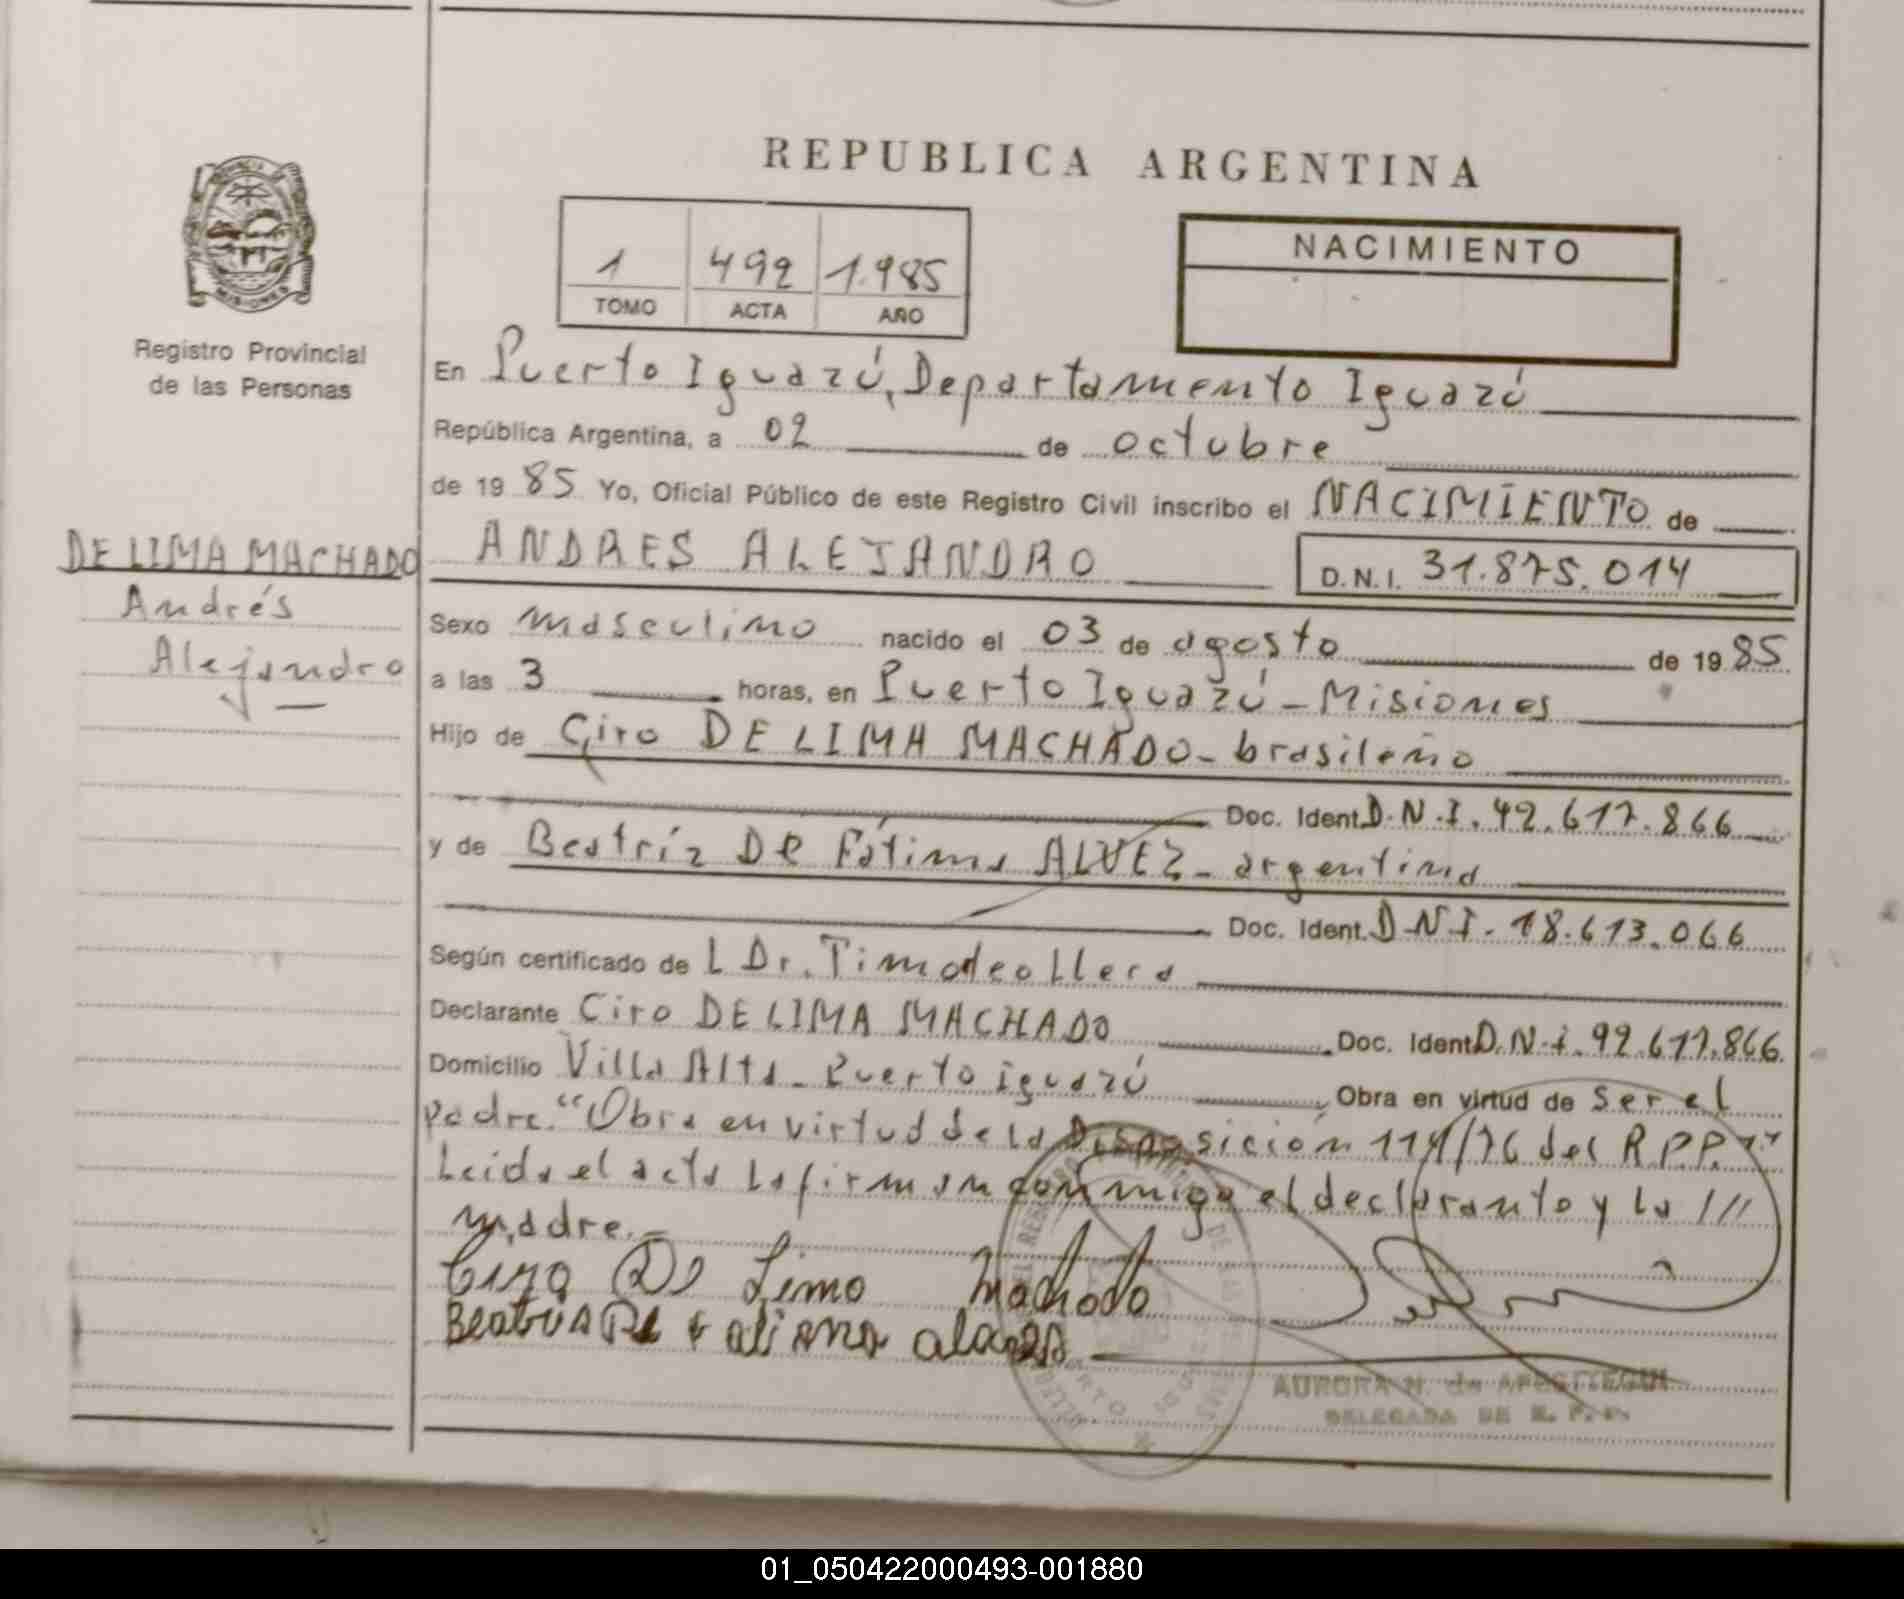 REPUBLICA ARGENTINA
1 492 1.985
TOMO ACTA AÑO
NACIMIENTO
PROVINCIA DE
MISIONES
Registro Provincial
de las Personas
DE LIMA MACHADO
Andrés
Alejandro
En Puerto Iguazú, Departamento Iguazú
República Argentina, a 02 de octubre
de 1985 Yo, Oficial Público de este Registro Civil inscribo el NACIMIENTO de
ANDRES ALEJANDRO D.N.I. 31.875.014
Sexo masculino nacido el 03 de agosto de 1985
a las 3 horas, en Puerto Iguazú - Misiones
Hijo de Ciro DE LIMA MACHADO - brasileño
Doc. Ident. D.N.I. 92.617.866
y de Beatríz DE Fátima ALVEZ - argentina
Doc. Ident. D.N.I. 18.613.066
Según certificado de L Dr. Timoteo Llera
Declarante Ciro DE LIMA MACHADO Doc. Ident. D.N.I. 92.617.866
Domicilio Villa Alta - Puerto Iguazú Obra en virtud de Ser el
padre. "Obra en virtud de la Disposición 114/76 del R.P.P."
Leida el acta la firman conmigo el declarante y la ///
madre.-
Ciro De Lima Machado
Beatris De
AURORA N. de APESTEGUI
DELEGADA DE R. P. P.
01_050422000493-001880